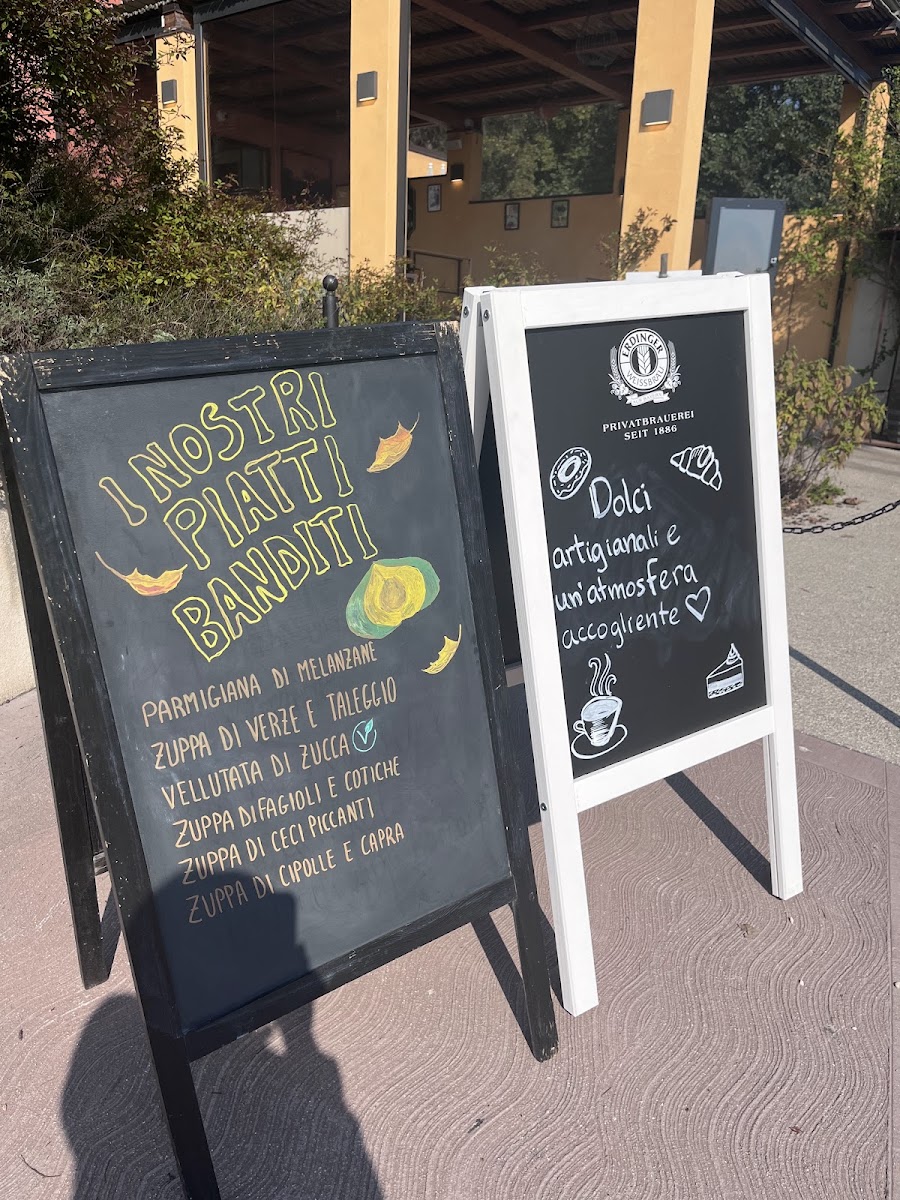 I NOSTRI
PIATTI
BANDITI
PARMIGIANA DI MELANZANE
ZUPPA DI VERZE E TALEGGIO
VELLUTATA DI ZUCCA V
ZUPPA DI FAGIOLI E COTICHE
ZUPPA DI CECI PICCANTI
ZUPPA DI CIPOLLE E CAPRA
ERDINGER
WEISSBRÄU
PRIVATBRAUEREI
SEIT 1886
Dolci
artigianali e
un'atmosfera
accogliente